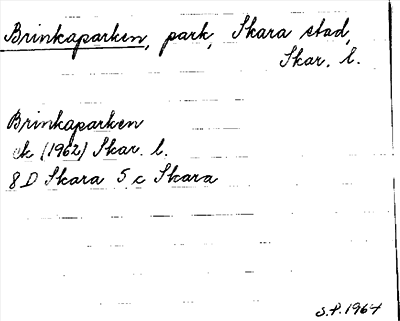 Brinkaparken, park, Skara stad,
Skar. l.
Brinkaparken
ek (1962) Skar. l.
8 D Skara 5 c Skara
S.P. 1964